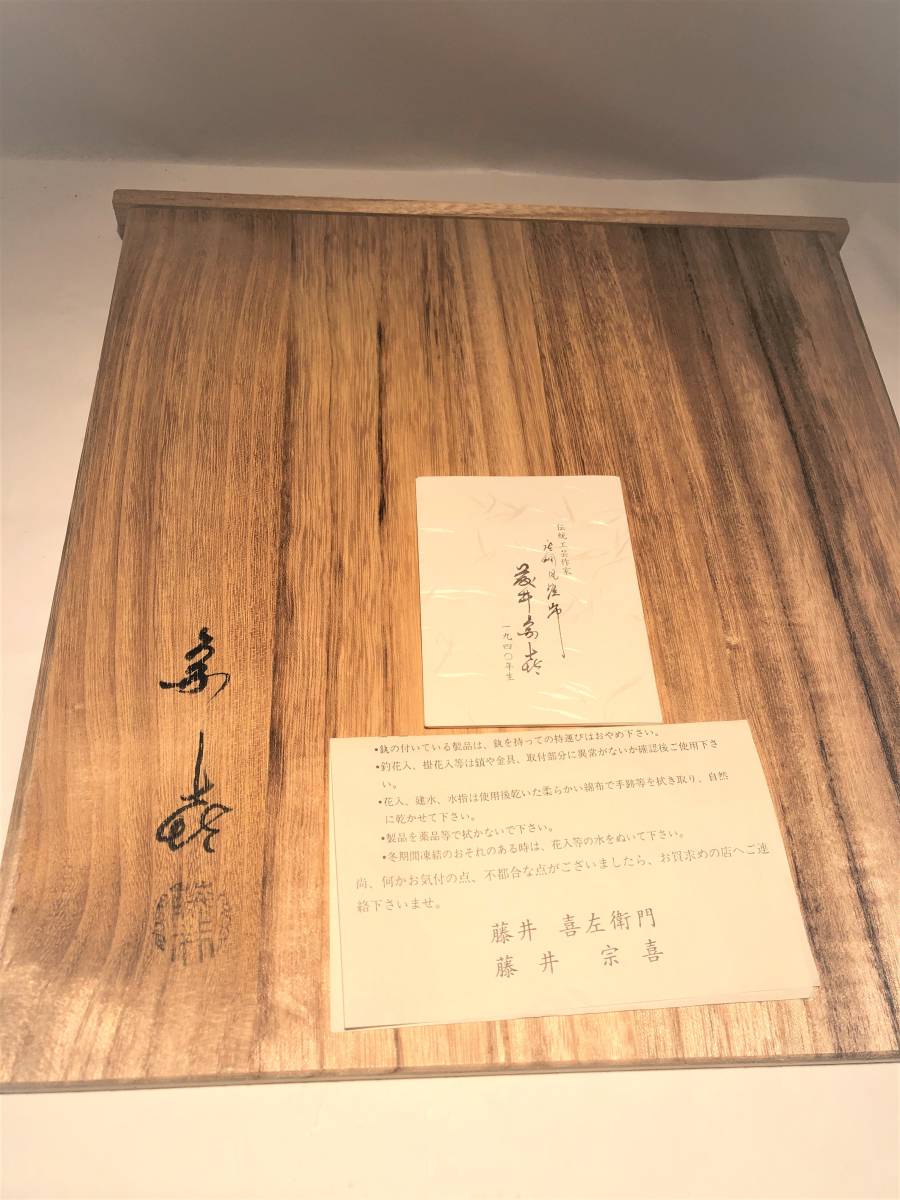 伝統工芸作家
藤井宗喜
一九四〇年生
•釻の付いている製品は、釻を持っての持運びはおやめ下さい。
•釣花入、掛花入等は鎖や金具、取付部分に異常がないか確認後ご使用下さ
い。
•花入、建水、水指は使用後乾いた柔らかい綿布で手跡等を拭き取り、自然
に乾かせて下さい。
•製品を薬品等で拭かないで下さい。
•冬期間凍結のおそれのある時は、花入等の水をぬいて下さい。
尚、何かお気付の点、不都合な点がございましたら、お買求めの店へご連
絡下さいませ。
藤井 喜左衛門
藤井 宗喜
宗喜